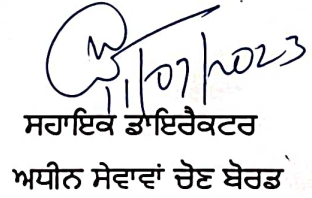 11/07/2023
ਸਹਾਇਕ ਡਾਇਰੈਕਟਰ
ਅਧੀਨ ਸੇਵਾਵਾਂ ਚੋਣ ਬੋਰਡ